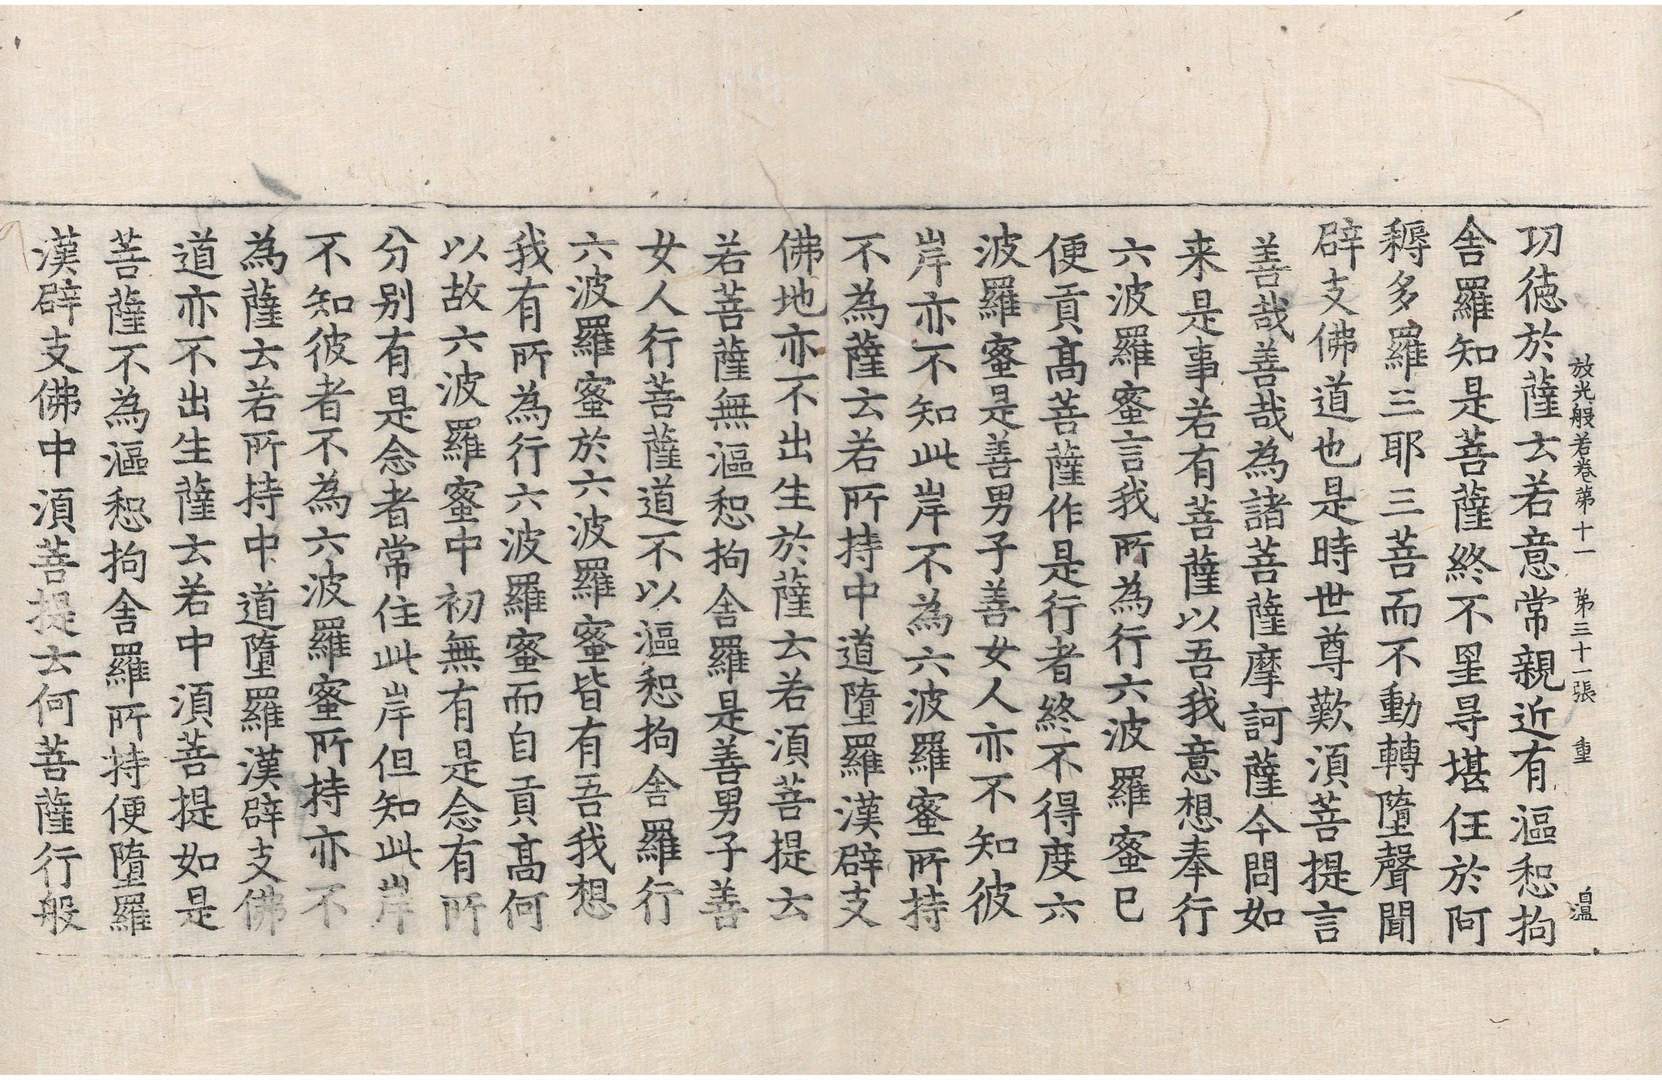 放光般若卷第十一　第三十一張　重
功徳於薩云若意常親近有漚惒拘
舍羅知是菩薩終不星㝵堪任於阿
耨多羅三耶三菩而不動轉墮聲聞
辟支佛道也是時世尊歎湏菩提言
善哉善哉為諸菩薩摩訶薩今問如
来是事若有菩薩以吾我意想奉行
六波羅蜜言我所為行六波羅蜜已
便貢髙菩薩作是行者終不得度六
波羅蜜是善男子善女人亦不知彼
岸亦不知此岸不為六波羅蜜所持
不為薩云若所持中道墮羅漢辟支
佛地亦不出生於薩云若湏菩提云
若菩薩無漚惒拘舍羅是善男子善
女人行菩薩道不以漚惒拘舍羅行
六波羅蜜於六波羅蜜皆有吾我想
我有所為行六波羅蜜而自貢髙何
以故六波羅蜜中初無有是念有所
分别有是念者常住此岸但知此岸
不知彼者不為六波羅蜜所持亦不
為薩云若所持中道墮羅漢辟支佛
道亦不出生薩云若中湏菩提如是
菩薩不為漚惒拘舍羅所持便墮羅
漢辟支佛中湏菩提云何菩薩行般